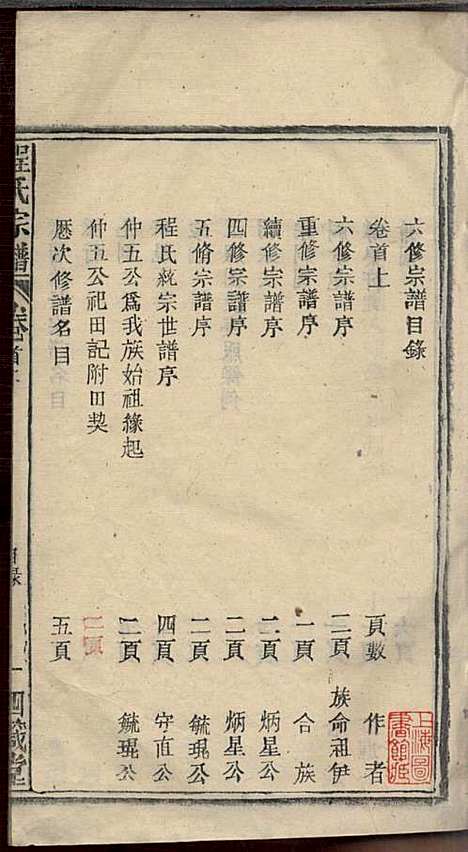 六修宗譜目錄
卷首上 頁數 作者
六修宗譜序 二頁 族命祖伊
重修宗譜序 一頁 合族
續修宗譜序 二頁 炳星公
四修宗譜序 二頁 炳星公
五脩宗譜序 二頁 毓琨公
程氏統宗世譜序 四頁 守直公
仲五公爲我族始祖緣起 二頁 毓琨公
仲五公祀田記附田契 二頁
歷次修譜名目 五頁
程氏宗譜 卷首上 目錄 一 四箴堂
上海圖書館藏